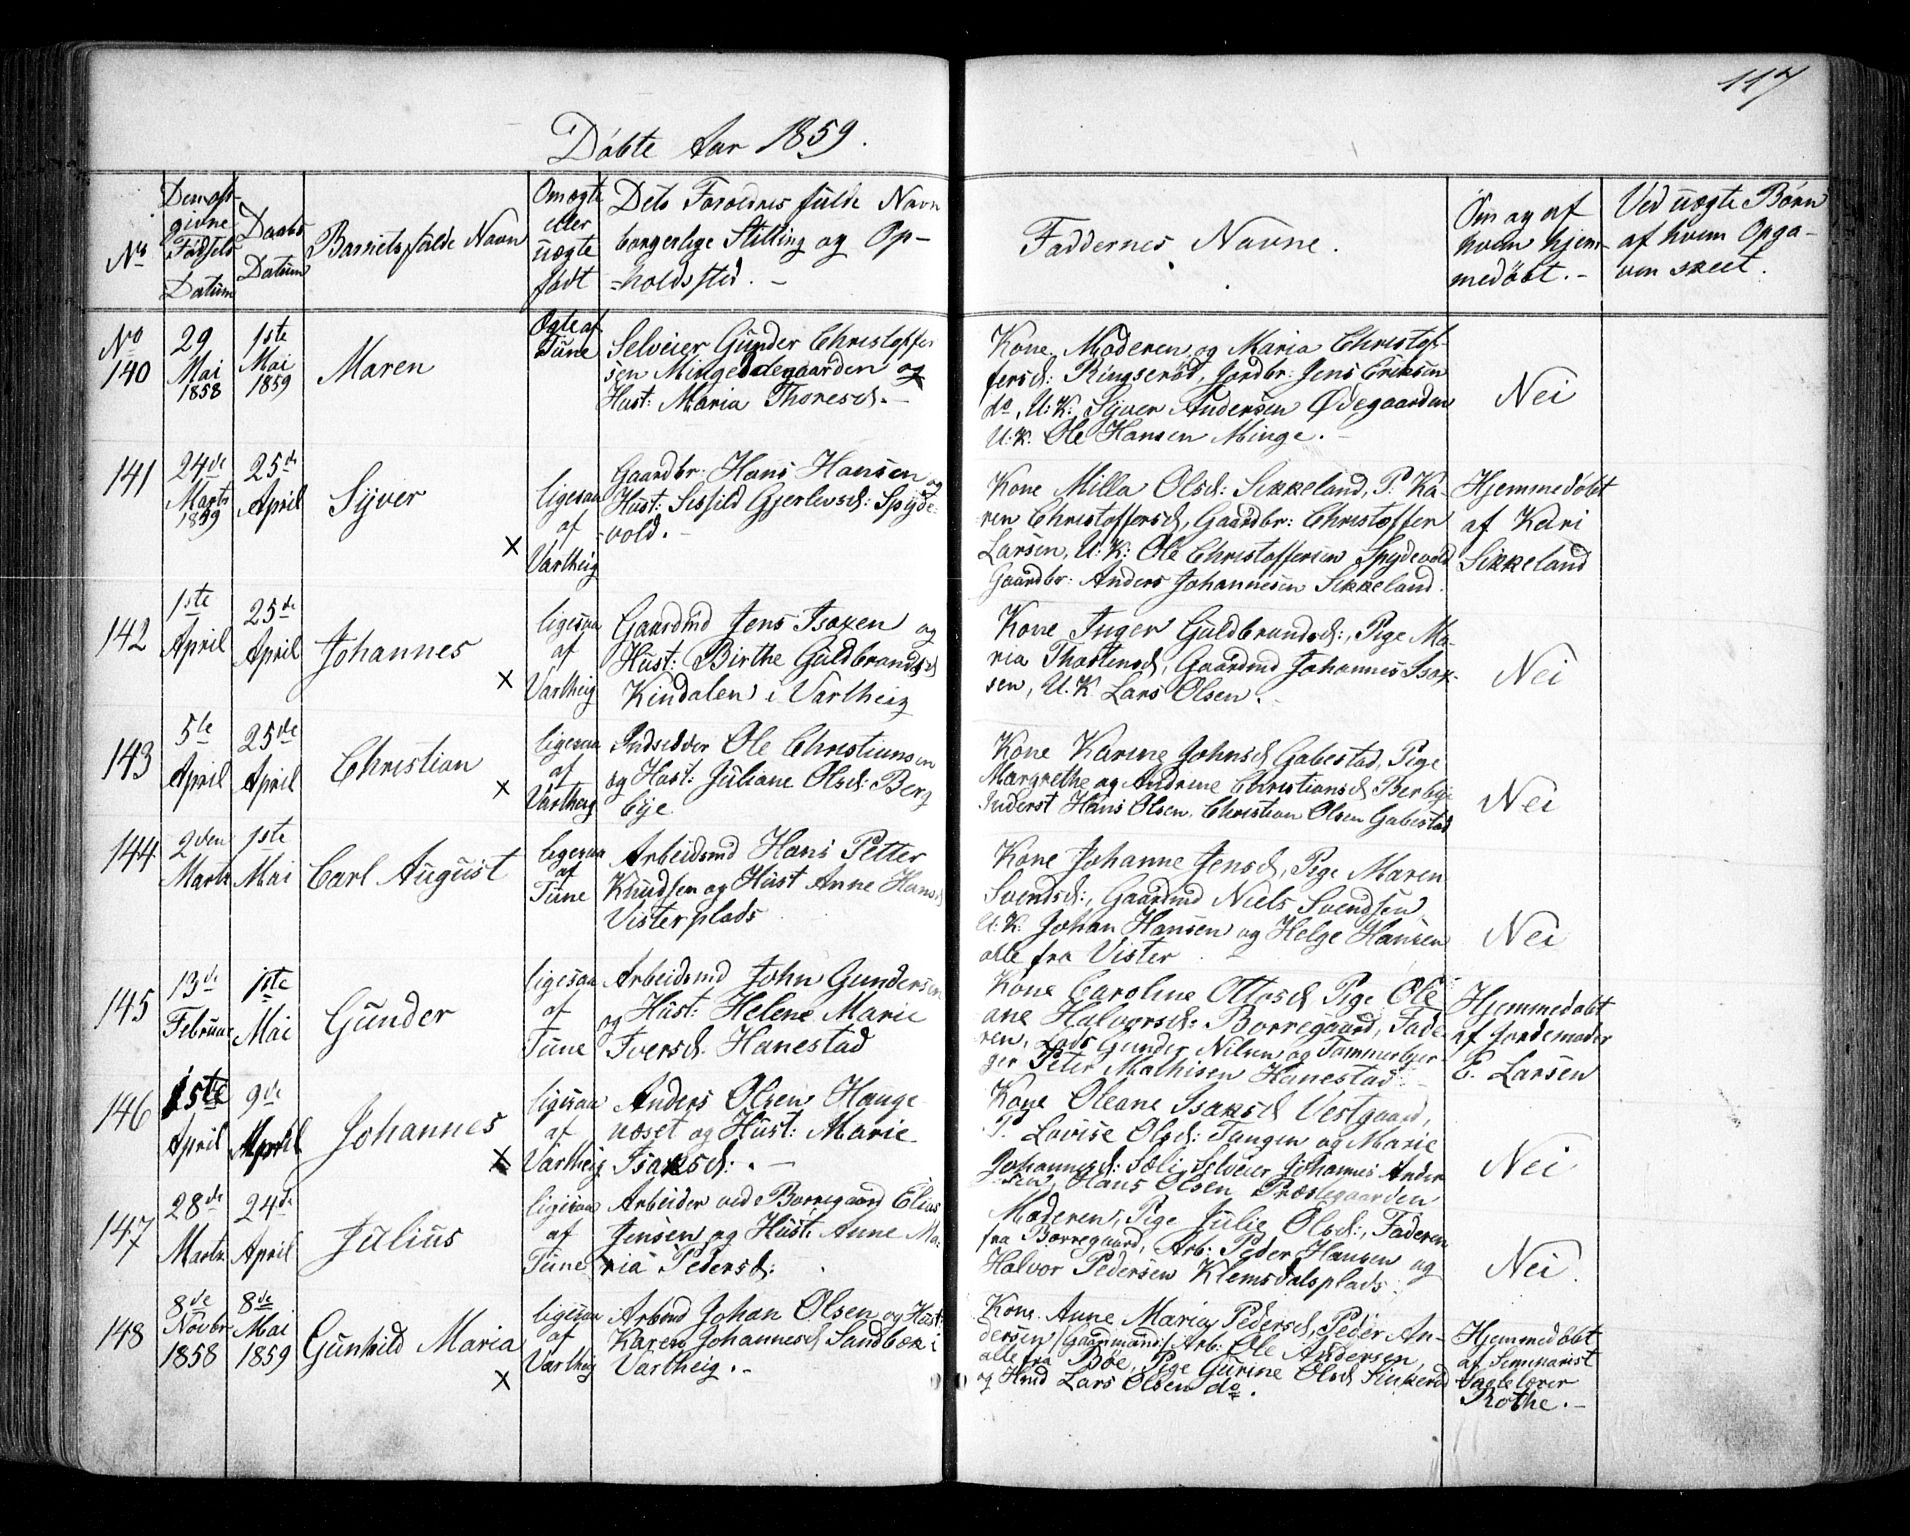 117
Døbte Aar 1859.
No
Den opgivne Fødsels Datum
Daabs Datum
Barnets fulde Navn
Om ægte eller uægte født
Dets Forældres fulde Navn
borgerlige Stilling og Op-
=holdssted. -
Faddernes Navne.
Om og af hvem hjemmedøbt. -
Ved uægte Børn
af hvem Opga-
ven skeet.
No 140
29 Mai 1858
1ste Mai 1859
Maren
Ægte af Tune
Selveier Gunder Christoffer
sen Minge Ødegaarden og
Hust: Maria Thoresd. -
Kone, Moderen og Maria Christof-
fersd: Ringserød, Jordbr: Jens Eriksen
do, U:K: Syver Andersen Ødegaarden
U:K: Ole Hansen Minge. -
Nei
141
24de Marts 1859
25de April
Syver
ligesaa af Vartheig
Gaardbr: Hans Hansen og
Hust: Sissild Gjerlevsd: Spyde-
vold. -
Kone Milla Olsd: Sikkeland, P: Ka-
ren Christoffersd, Gaardbr: Christoffer
Larsen, U:K: Ole Christoffersen Spydevold
Gaardbr: Anders Johannesen Sikkeland.
Hjemmedøbt
af Kari
Sikkeland
142
1ste April
25de April
Johannes
ligesaa af Vartheig
Gaardmd Jens Isaxen og
Hust: Birthe Guldbrandsd
Kindalen i Vartheig
Kone Inger Guldbrandsd:, Pige Ma-
ria Thostensd, Gaardmd Johannes Isax-
sen, U.K. Lars Olsen. -
Nei
143
5te April
25de April
Christian
ligesaa af Vartheig
Indsidder Ole Christiansen
og Hust: Juliane Olsd: Berg
bye
Kone Karine Johnsd Gabestad, Pige
Margrethe og Andrine Christiansd Berbye
Inderst Hans Olsen, Christian Olsen Gabestad
Nei
144
2den Marts
1ste Mai
Carl August
ligesaa af Tune
Arbeidsmd Hans Petter
Knudsen og Hust Anne Hansd
Visterplads
Kone Johanne Jensd, Pige Maren
Svendsd:, Gaardmd Niels Svendsen,
U.K. Johan Hansen og Helge Hansen
alle fra Vister
Nei
145
13de Februar
1ste Mai
Gunder
ligesaa af Tune
Arbeidsmd John Gundersen
og Hust: Helene Marie
Iversd. Hanestad
Kone Caroline Ottosd Pige Ole
ane Halvorsd: Borregaard, Fade-
ren, Lods Gunder Nilsen og Tømmerbjer-
ger Peter Mathisen Hanestad. -
Hjemmedøbt
af Jordemoder
E. Larsen
146
1ste April
9de April
Johannes
ligesaa af Vartheig
Anders Olsen Hauge-
næset og Hust: Marie
Isaksd: . -
Kone Oleane Isaksd Vestgaard,
P. Lovise Olsd: Tangen og Marie
Johannesd: Sæli, Selveier Johannes Ander
sen, Hans Olsen Præstegaarden
Nei
147
28de Marts
24de April
Julius
ligesaa af Tune
Arbeider ved Borregaard Elias
Jensen og Hust: Anne Ma-
ria Pedersd:
Moderen, Pige Julie Olsd:, Faderen
fra Borregaard, Arb: Peder Hansen og
Halvor Pedersen Klemsdalsplads.
Nei.
148
8de Novbr 1858
8de Mai 1859
Gunhild Maria
ligesaa af Vartheig
Arbmd Johan Olsen og Hust:
Karen Johannesd Sandbæk i
Vartheig. -
Kone Anne Maria Pedersd, Peder An-
dersen /Gaardmand/ Arb: Ole Andersen,
alle fra Bøe, Pige Gurine Olsd
og Lars Olsen do.
Hjemmedøbt
af Seminarist
Rothe. -